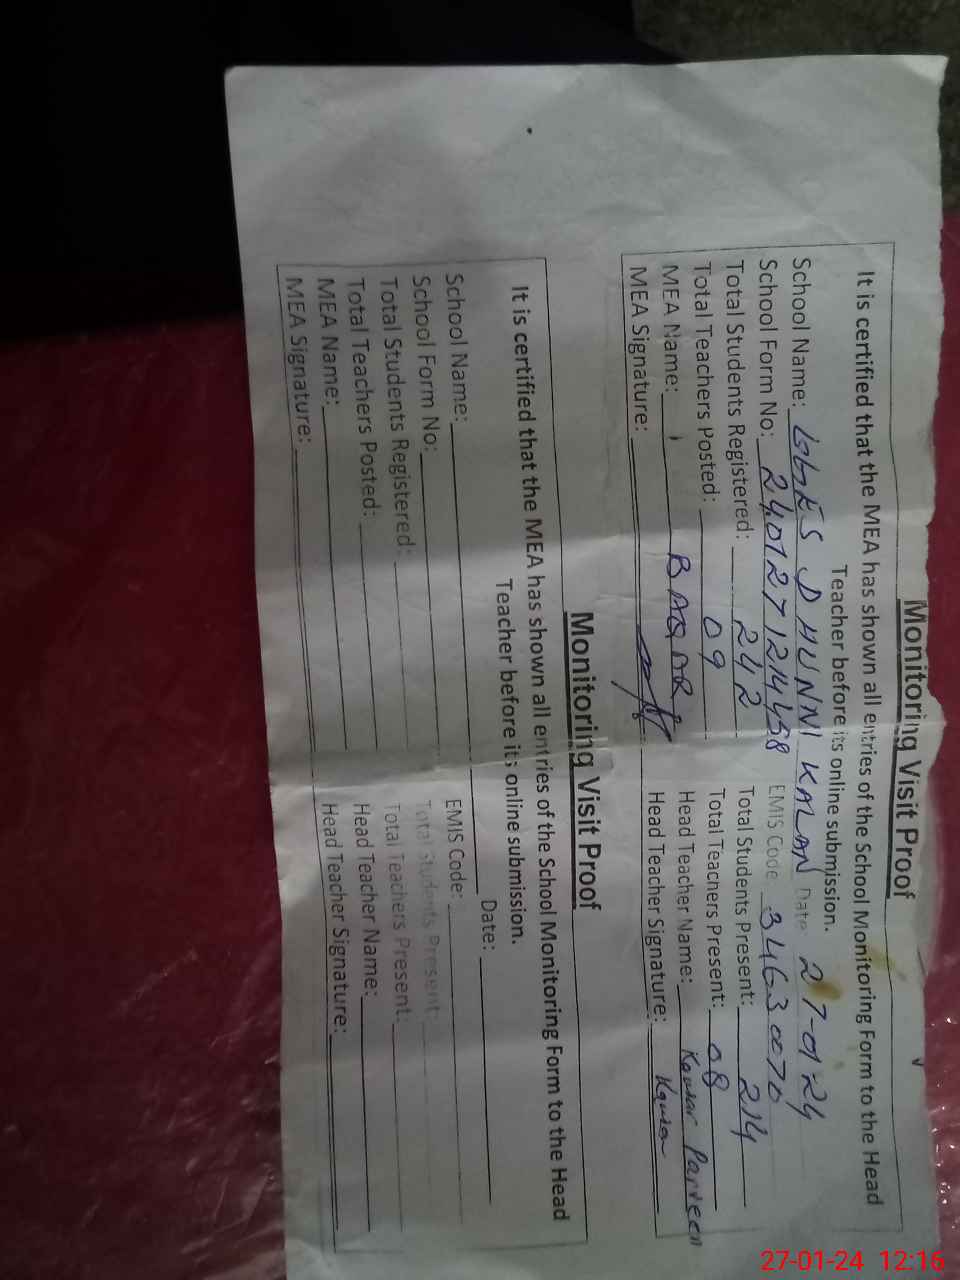 Monitoring Visit Proof
It is certified that the MEA has shown all entries of the School Monitoring Form to the Head
Teacher before its online submission.
School Name: DHUNNI KALAN Date: 27-01-24
School Form No: 2401271214458 EMIS Code: 34630070
Total Students Registered: 242 Total Students Present: 214
Total Teachers Posted: 09 Total Teachers Present: 08
MEA Name: BAQAR Head Teacher Name: Kousar Parveen
MEA Signature: Head Teacher Signature: Kousar
Monitoring Visit Proof
It is certified that the MEA has shown all entries of the School Monitoring Form to the Head
Teacher before its online submission.
School Name: Date:
School Form No: EMIS Code:
Total Students Registered: Total Students Present:
Total Teachers Posted: Total Teachers Present:
MEA Name: Head Teacher Name:
MEA Signature: Head Teacher Signature:
27-01-24 12:16